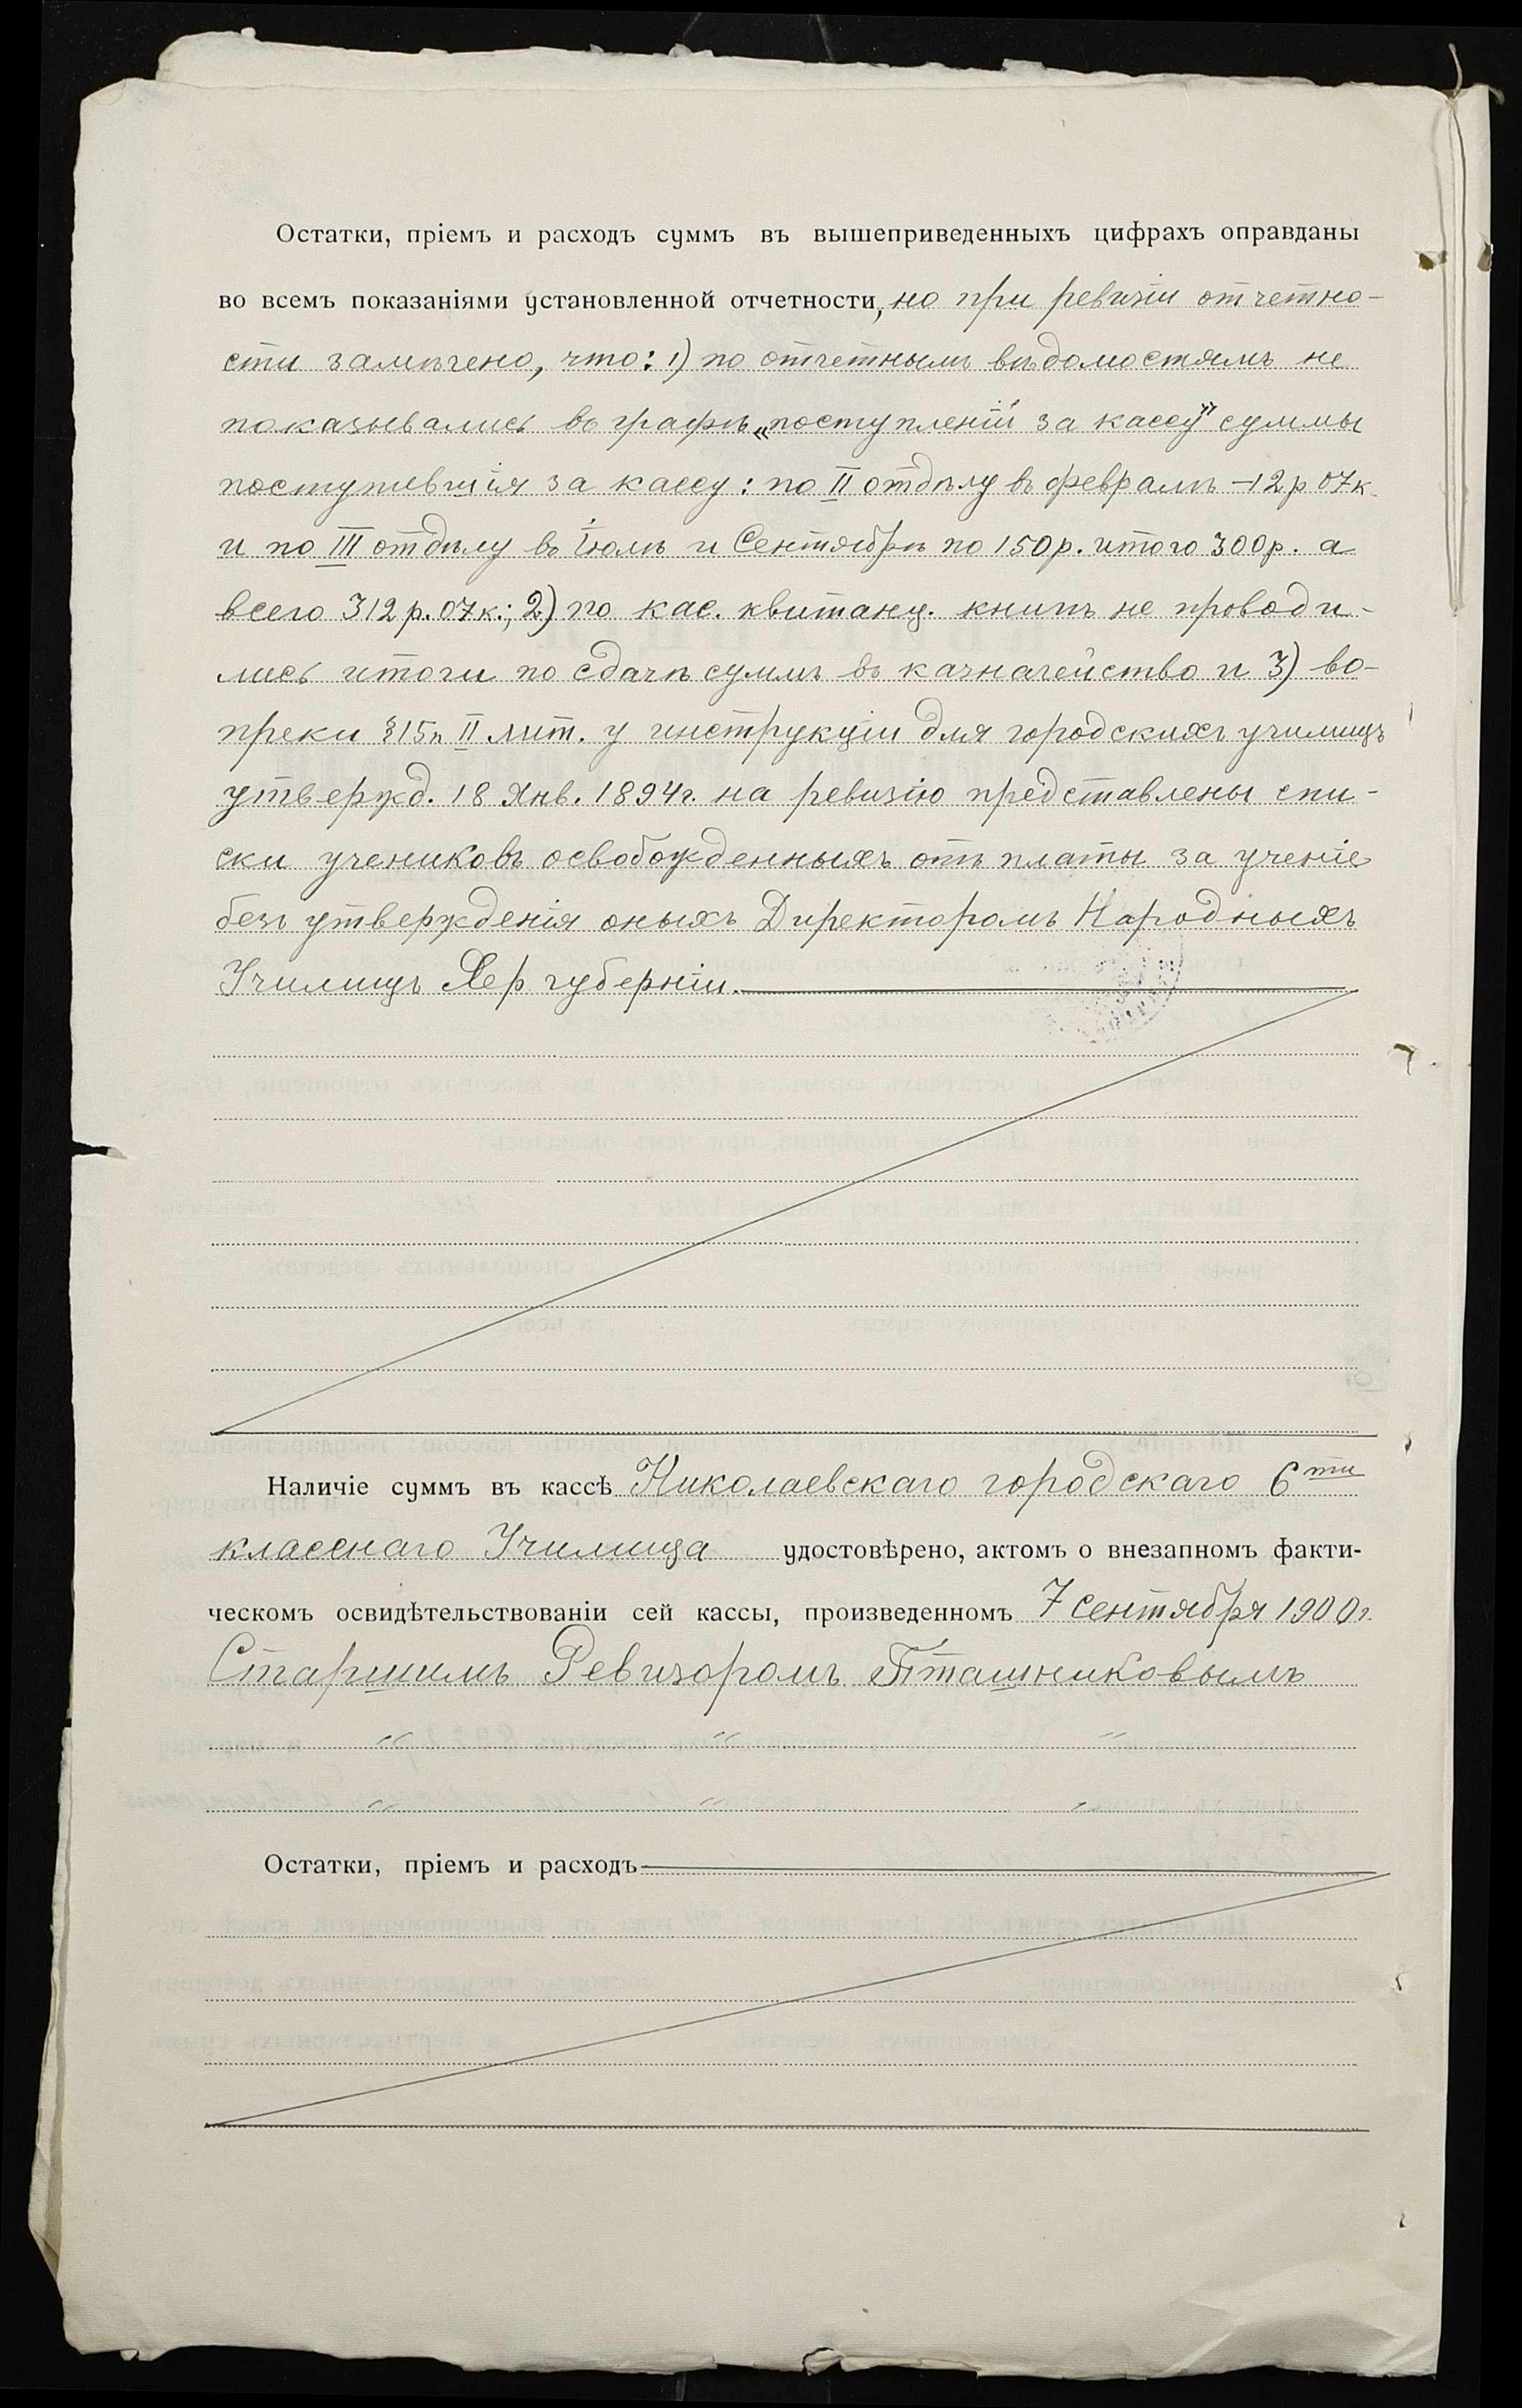 Остатки, пріемъ и расходъ суммъ въ вышеприведенныхъ цифрахъ оправданы
во всемъ показаніями установленной отчетности, но при ревизіи отчетно-
сти замѣчено, что: 1) по отчетнымъ вѣдомостямъ не
показывались въ графѣ „поступленій за кассу" суммы
поступившія за кассу: по II отдѣлу въ февралѣ – 12 р 07 к.
и по III отдѣлу въ Іюлѣ и Сентябрѣ по 150 р. итого 300 р. а
всего 312 р. 07 к.; 2) по кас. квитанц. книгѣ не проводи-
лись итоги по сдачѣ суммъ въ казначейство и 3) во-
преки § 15 п II лит. у инструкціи для городскихъ училищъ
утвержд. 18 Янв. 1894 г. на ревизію представлены спи-
ски учениковъ освобожденныхъ отъ платы за ученіе
безъ утвержденія оныхъ Директоромъ Народныхъ
Училищъ Хер. губерніи.
Наличіе суммъ въ кассѣ Николаевскаго городскаго 6ти
класснаго Училища удостовѣрено, актомъ о внезапномъ факти-
ческомъ освидѣтельствованіи сей кассы, произведенномъ 7 Сентября 1900 г.
Старшимъ Ревизоромъ Пташниковымъ
" " "
" " "
Остатки, пріемъ и расходъ